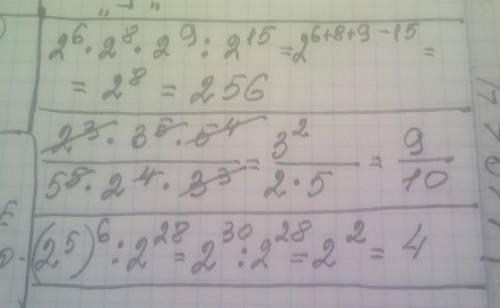 2⁶ · 2⁸ · 2⁹ : 2¹⁵ = 2⁶⁺⁸⁺⁹⁻¹⁵ =
= 2⁸ = 256
2³ · 3⁵ · 5⁴ / 5⁵ · 2⁴ · 3³ = 3² / 2 · 5 = 9 / 10
(2⁵)⁶ : 2²⁸ = 2³⁰ : 2²⁸ = 2² = 4